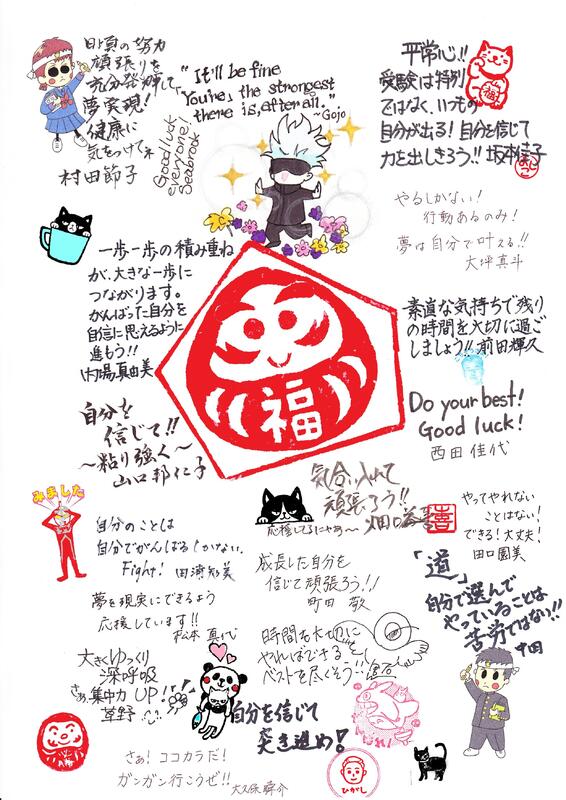 日頃の努力
頑張りを
充分発揮して
夢実現!
健康に
気をつけてネ
村田節子
"It'll be fine
You're the strongest
there is, after all."
~Gojo
Good luck
everyone!
Seabrook
平常心!!
受験は特別
ではなく、いつもの
自分が出る!自分を信じて
力を出しきろう!! 坂本佳子
やるしかない!
行動あるのみ!
夢は自分で叶える!!
大坪真斗
一歩一歩の積み重ね
が、大きな一歩に
つながります。
がんばった自分を
自信に思えるように
進もう!!
内場真由美
福
素直な気持ちで残り
の時間を大切に過ご
しましょう!! 前田輝久
Do your best!
Good luck!
西田佳代
自分を
信じて!!
~粘り強く~
山口邦仁子
気合い入れて
頑張ろう!!
応援してるにゃあ~
喜
みました
自分のことは
自分でがんばるしかない.
Fight!
成長した自分を
信じて頑張ろう!!
町田 敬
やってやれない
ことはない!
できる!大丈夫!
田口園美
「道」
自分で選んで
やっていることは
苦労ではない!!
中田
夢を現実にできるよう
応援しています!!
松本
時間を大切に
やればできる
ベストを尽くそう!!
大きくゆっくり
深呼吸
さぁ、集中力UP!!
草野
自分を信じて
突き進め!
ひがし
さぁ!ココカラだ!
ガンガン行こうぜ!!
大久保